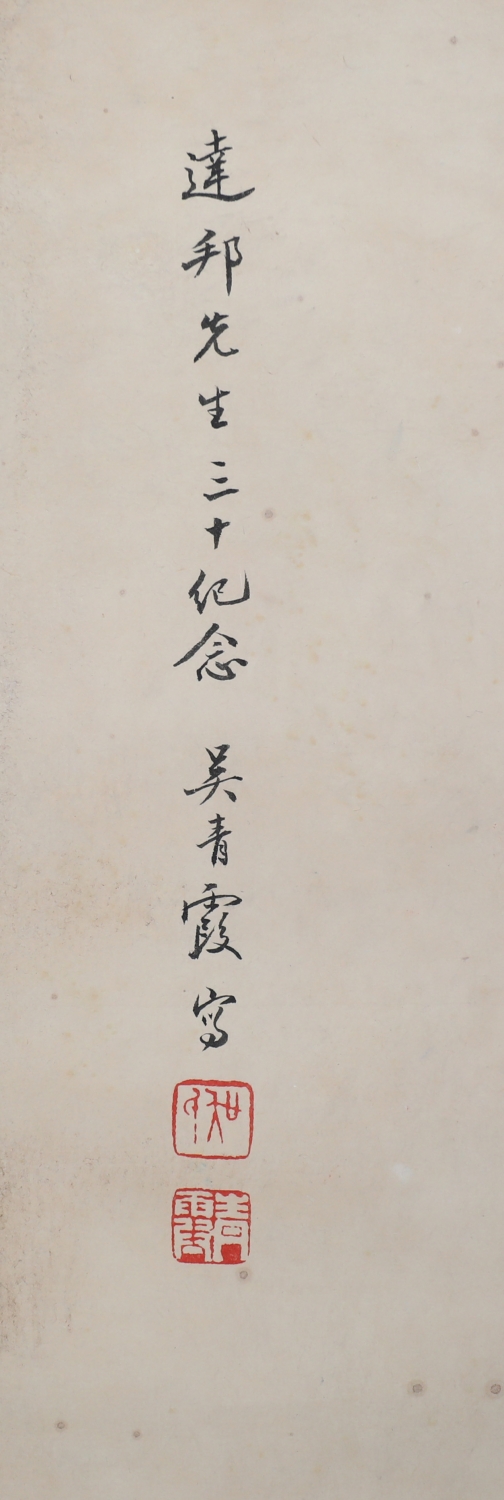 達邦先生三十紀念 吳青霞寫
青霞